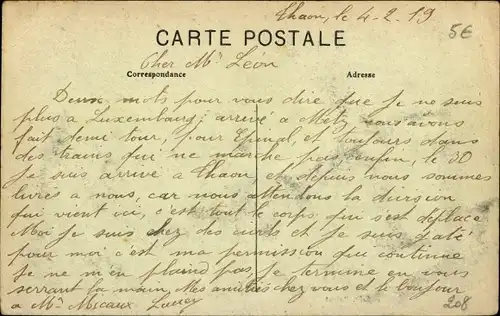 Thaon, le 4-2-19
5€
CARTE POSTALE
Cher Mr Léon
Correspondance
Adresse
Deux mots pour vous dire que je ne suis
plus a Luxembourg, arrivé a Metz, nous avons
fait demi tour, pour Epinal, et toujours dans
des trains qui ne marche pas, enfin, le 30
je suis arrivé a Thaon, et depuis nous sommes
livrés a nous, car nous attendons la division
qui vient ici, c'est tout le corps qui s'est déplacé
Moi je suis chez des civils et je suis gaté
pour moi c'est ma permission qui continue
je ne m'en plaind pas, je termine en vous
serrant la main, Mes amitiés chez vous et le bonjour
a Mr Micaux
208